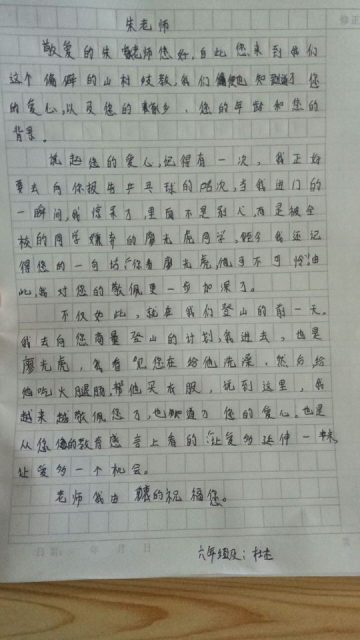 朱老师
敬爱的朱老师您好,自从您来到我们
这个偏僻的山村校教,我们便也知道了您
的爱心,以及您的家乡、您的年龄和您的
背景。
说起您的爱心,记得有一次,我正好
要去向你报告乒乓球的啪次,当我进门的
一瞬间,我惊呆了,里面不是别人,而是被全
校的同学嫌弃的廖光虎同学,至今我还记
得您的一句话:“你看廖光虎,他可不可怜”由
此,我对您的敬佩更一步加深了。
不仅如此,就在我们登山的前一天。
我去向您商量登山的计划,我进去,也是
廖光虎,我看见您在给他洗澡,然后给
他吃火腿肠,帮他买衣服,说到这里,我
越来越敬佩您了,也知道了您的爱心。也是
从您的教育感言上看的:“让爱多延伸一米,
让爱多一个机会。
老师我由衷的祝福您。
六年级及:杜